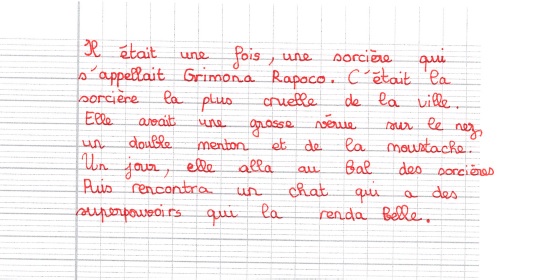 Il était une fois, une sorcière qui
s'appellait Grimona Rapoco. C'était la
sorcière la plus cruelle de la ville.
Elle avait une grosse vérue sur le nez,
un double menton et de la moustache.
Un jour, elle alla au Bal des sorcières
Puis rencontra un chat qui a des
superpouvoirs qui la renda Belle.